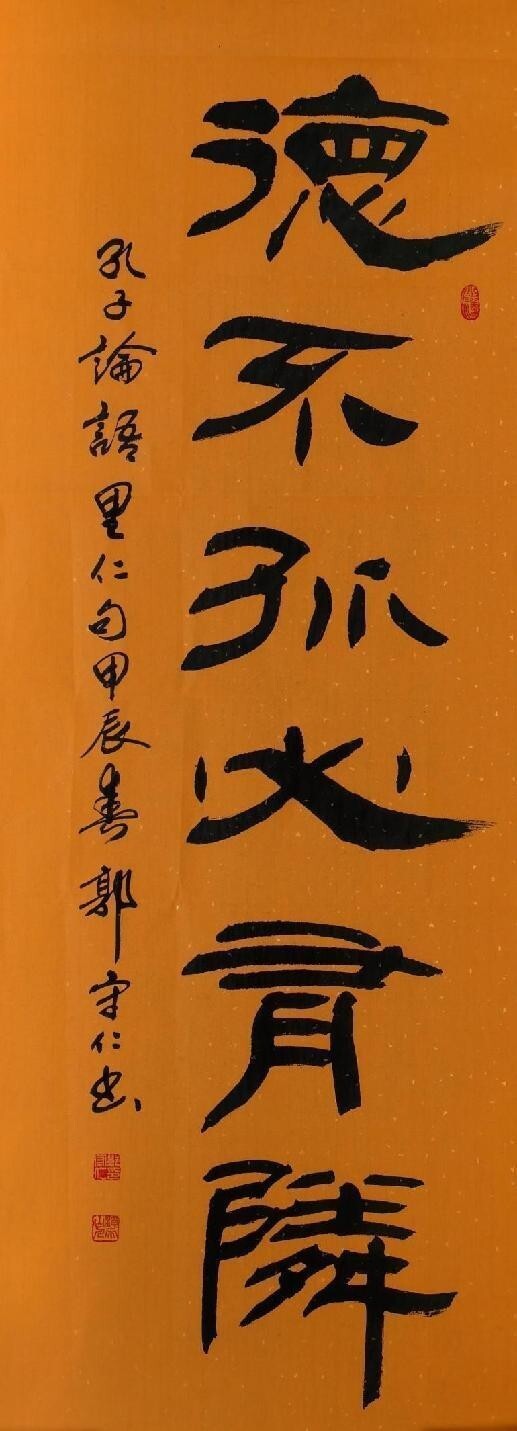 德不孤必有隣
孔子論語里仁句甲辰春郭守仁书